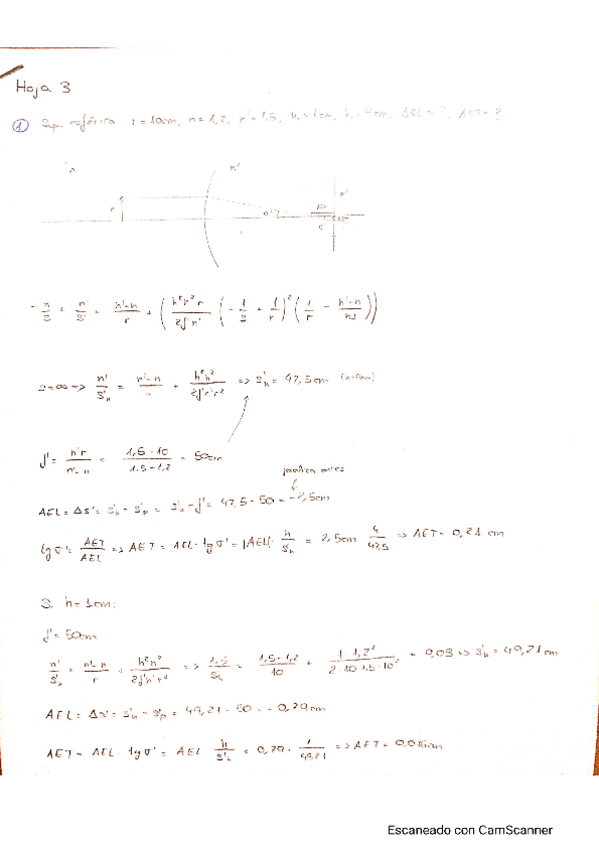 Hoja 3
① Sup. esférica r = 10cm, n = 1,2, n' = 1,5, h₁ = 1cm, h₂ = 4cm, AEL = ?, AET = ?
n n'
- n/s + n'/s' = n'-n/r + (h²n²r/2f'n' (-1/s + 1/r)² (1/r - n'-n/ns))
s=∞ => n'/s'ₕ = n'-n/r + h²n²/2f'n'r² => s'ₕ = 47,5cm (h=4cm)
f' = n'r/n'-n = 1,5 · 10/1,5-1,2 = 50cm
AEL = Δs' = s'ₕ - s'ₚ = s'ₕ - f' = 47,5 - 50 = -2,5cm
tg σ' = AET/AEL => AET = AEL · tg σ' = |AEL| · h/s'ₕ = 2,5cm 4/47,5 => AET = 0,21 cm
Si h = 1cm:
f' = 50cm
n'/s'ₕ = n'-n/r + h²n²/2f'n'r² => 1,5/s'ₕ = 1,5-1,2/10 + 1·1,2²/2·10·1,5·10² = 0,03 => s'ₕ = 49,21cm
AEL = Δs' = s'ₕ - s'ₚ = 49,21 - 50 = -0,79cm
AET = AEL · tg σ' = AEL · h/s'ₕ = 0,79 · 1/49,21 => AET = 0,016cm
Escaneado con CamScanner